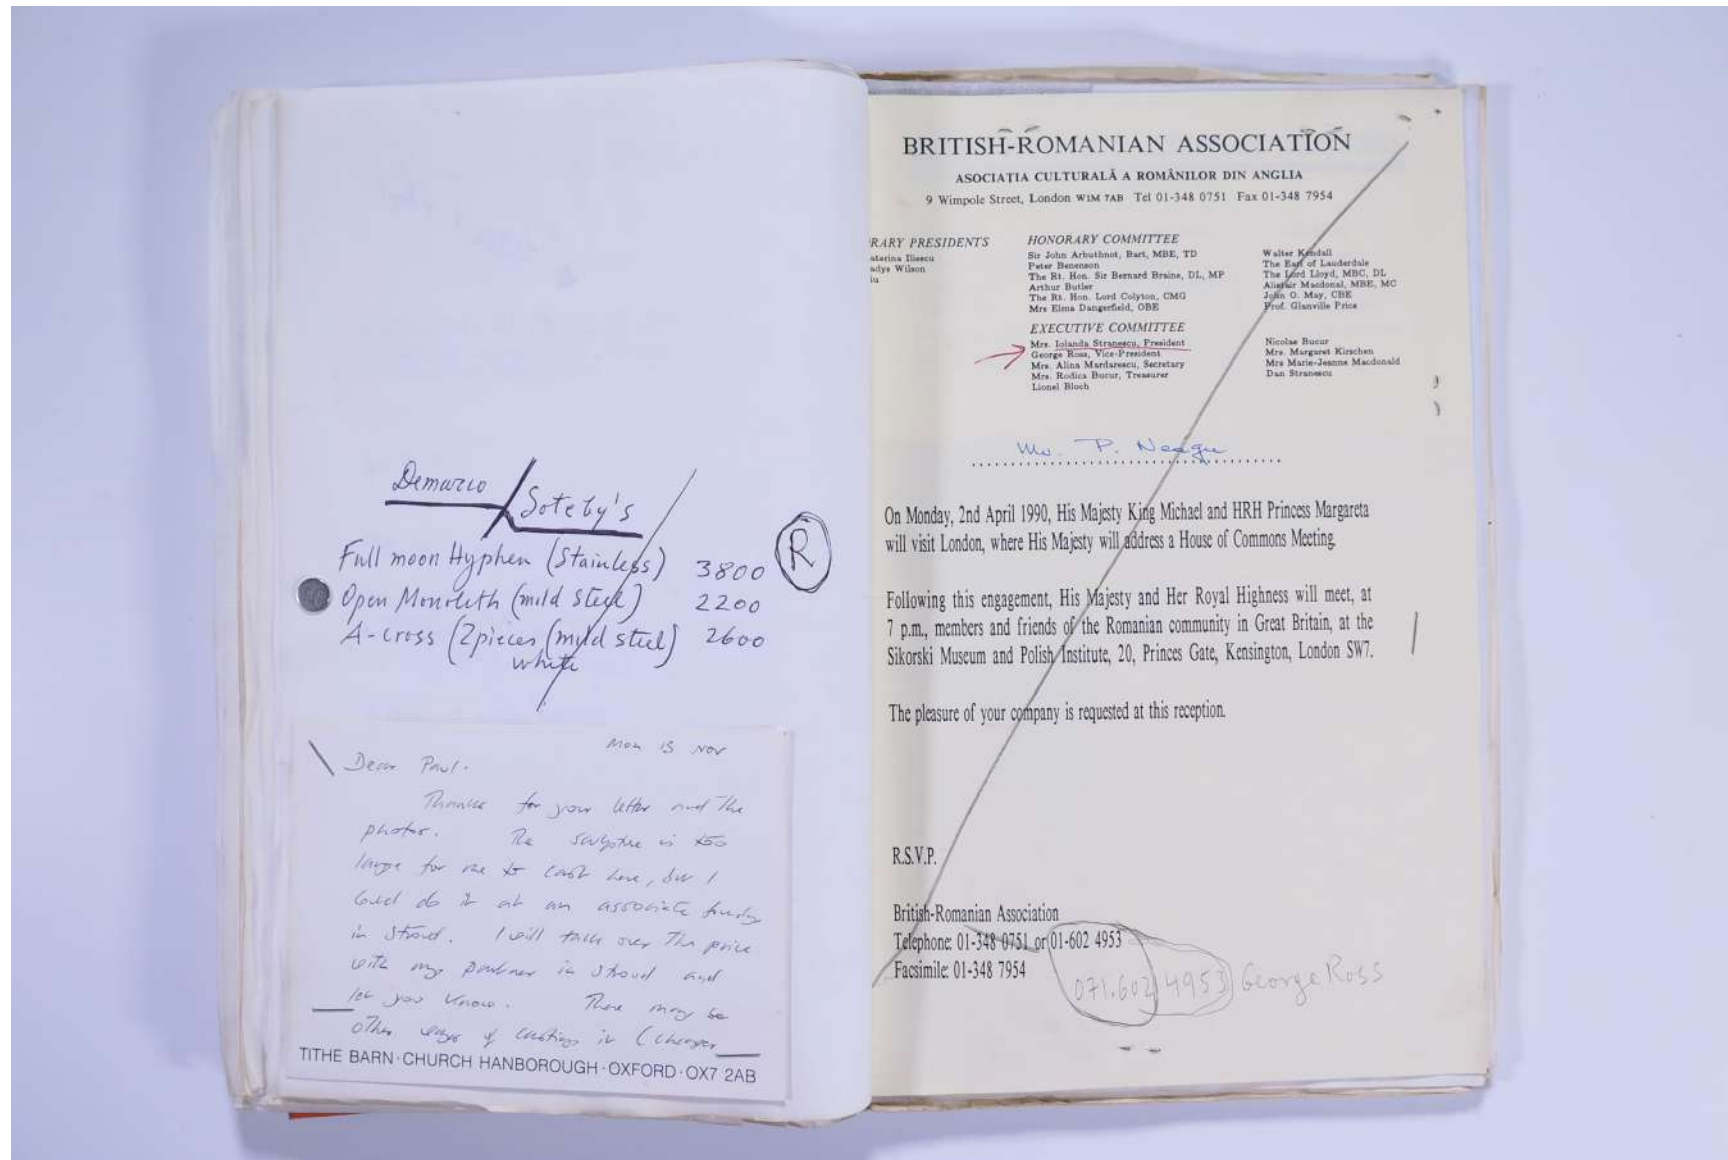 Demarco / Soteby's
Full moon Hyphen (Stainless) 3800
R
Open Monoleth (mild steel) 2200
A-cross (2pieces (mild steel) 2600
white
Mon 15 Nov
Dear Paul.
Thanks for your letter and the
photos. The sculpture is too
large for me to cast here, but I
could do it at an associate foundry
in Stroud. I will talk over the price
with my partner in Stroud and
let you know. There may be
other ways of casting it (cheaper
TITHE BARN·CHURCH HANBOROUGH·OXFORD·OX7 2AB
BRITISH-ROMANIAN ASSOCIATION
ASOCIAȚIA CULTURALĂ A ROMÂNILOR DIN ANGLIA
9 Wimpole Street, London W1M 7AB Tel 01-348 0751 Fax 01-348 7954
RARY PRESIDENTS
aterina Iliescu
adys Wilson
iu
HONORARY COMMITTEE
Sir John Arbuthnot, Bart, MBE, TD
Peter Benenson
The Rt. Hon. Sir Bernard Braine, DL, MP
Arthur Butler
The Rt. Hon. Lord Colyton, CMG
Mrs Elma Dangerfield, OBE
Walter Kendall
The Earl of Lauderdale
The Lord Lloyd, MBC, DL
Alistair Macdonal, MBE, MC
John O. May, CBE
Prof. Glanville Price
EXECUTIVE COMMITTEE
Mrs. Iolanda Stranescu, President
George Ross, Vice-President
Mrs. Alina Mardarescu, Secretary
Mrs. Rodica Bucur, Treasurer
Lionel Bloch
Nicolae Bucur
Mrs. Margaret Kirschen
Mrs Marie-Jeanne Macdonald
Dan Stranescu
Mr. P. Neagu
On Monday, 2nd April 1990, His Majesty King Michael and HRH Princess Margareta
will visit London, where His Majesty will address a House of Commons Meeting.
Following this engagement, His Majesty and Her Royal Highness will meet, at
7 p.m., members and friends of the Romanian community in Great Britain, at the
Sikorski Museum and Polish Institute, 20, Princes Gate, Kensington, London SW7.
The pleasure of your company is requested at this reception.
R.S.V.P.
British-Romanian Association
Telephone: 01-348 0751 or 01-602 4953
Facsimile: 01-348 7954
071.602 4953 George Ross